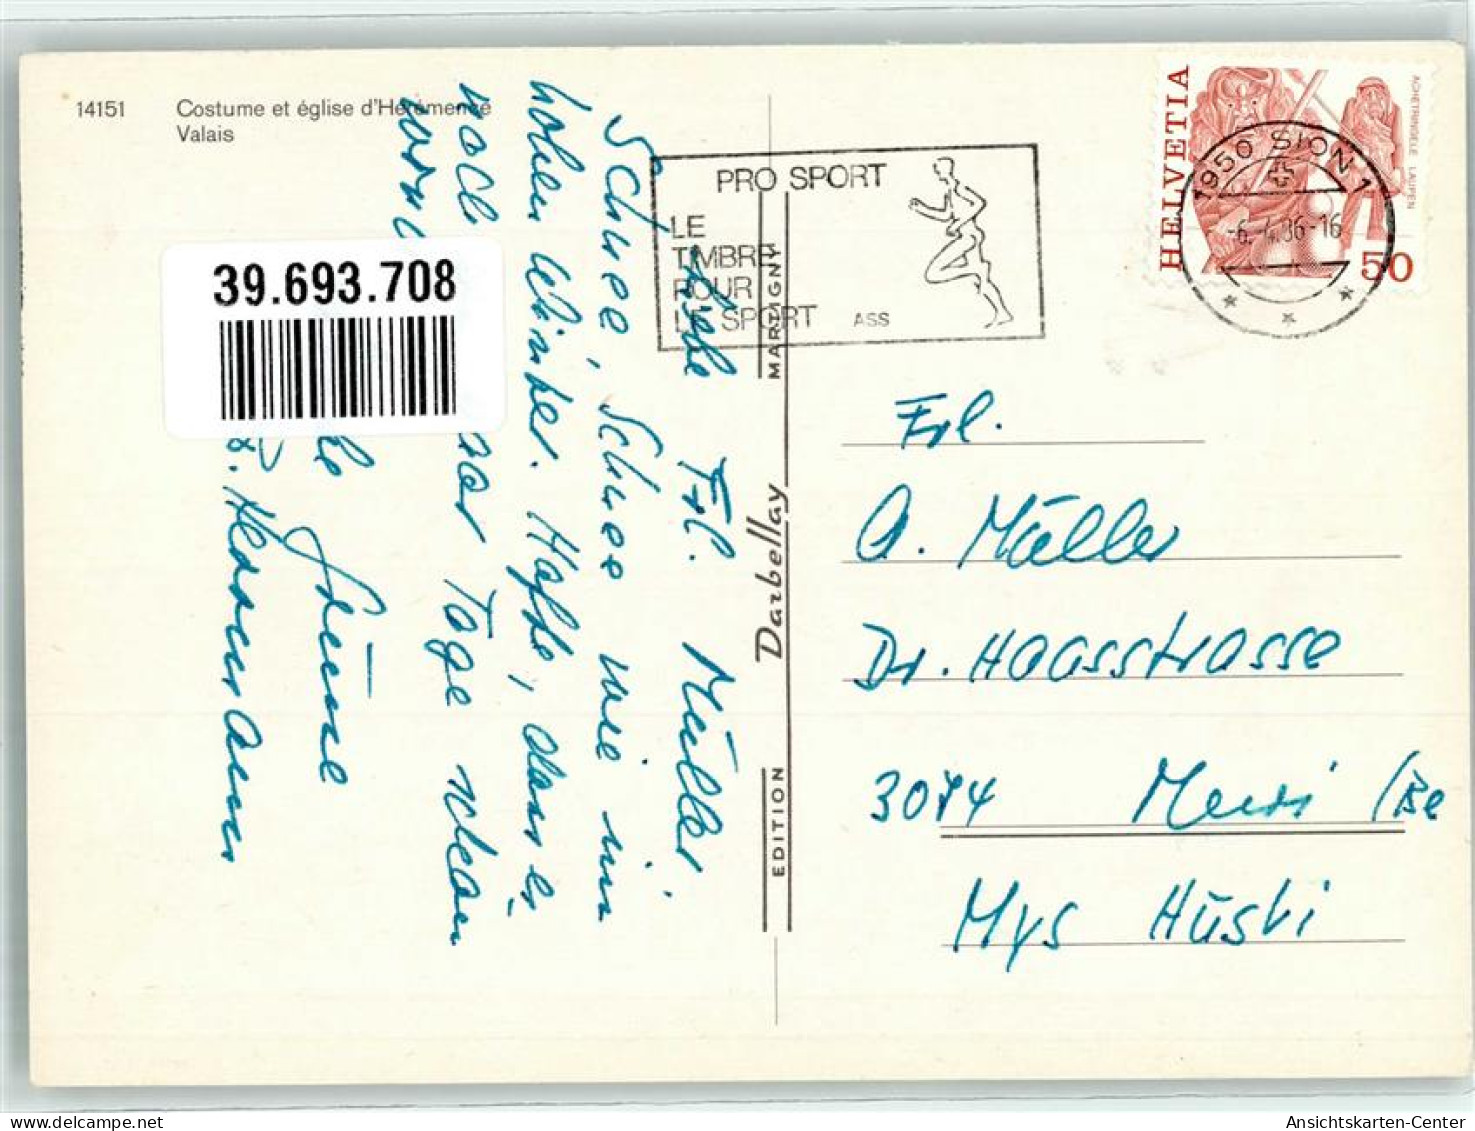 14151 Costume et église d'Hérémence
Valais
Liebe Frl. Müller.
Schnee, Schnee wie im
hohen Winter. Hoffe, dass es
noch
paar Tage schön
Grüsse
Herrmann
39.693.708
PRO SPORT
LE
TIMBRE
POUR
LE SPORT ASS
EDITION Darbellay MARTIGNY
HELVETIA
ACHETRINGELE LAUPEN
50
1950 SION 1
-6.-4.86-16
Frl.
A. Müller
Dr. Haasstrasse
3074 Muri /Be
Mys Hüsli
Ansichtskarten-Center